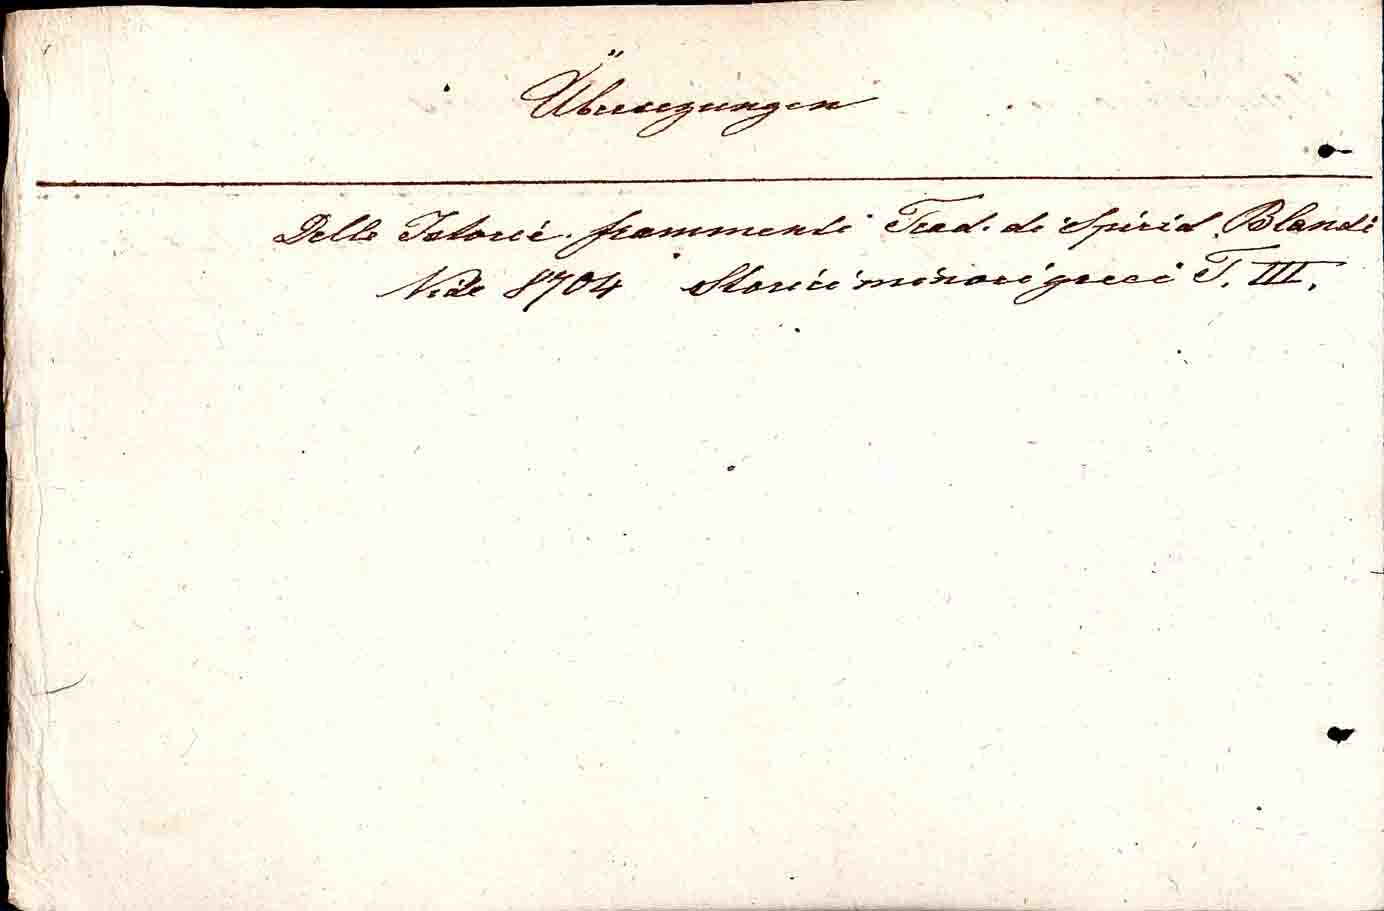 Übersezungen
Delle Istorie. frammenti Trad. di Spirid. Blandi
Vide 8704 Storici minori greci T. III.